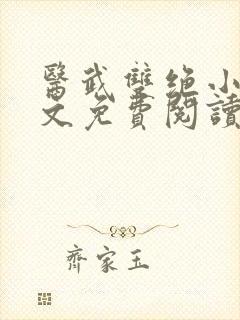 醫武雙絕小
文免費閱讀
齊家玉